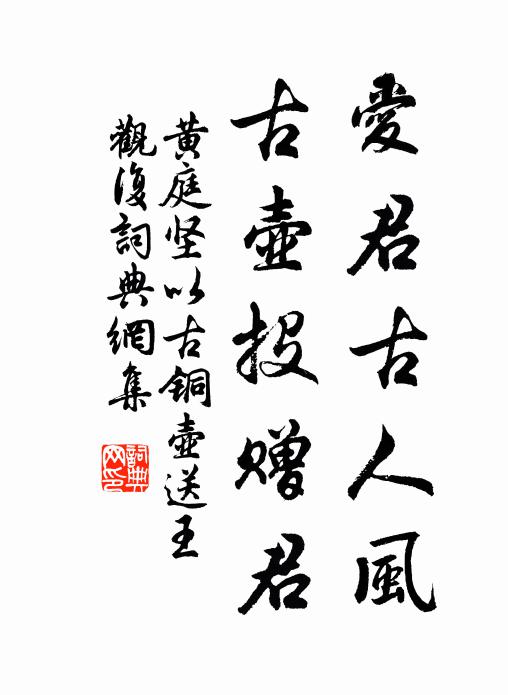 愛君古人風
古壺投贈君
黄庭坚以古銅壺送王
觀復詞典網集
詞典
网印